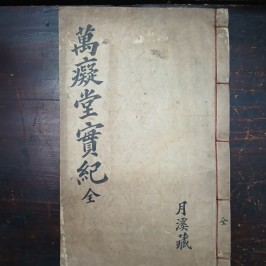 萬癡堂實紀全
月溪藏
全